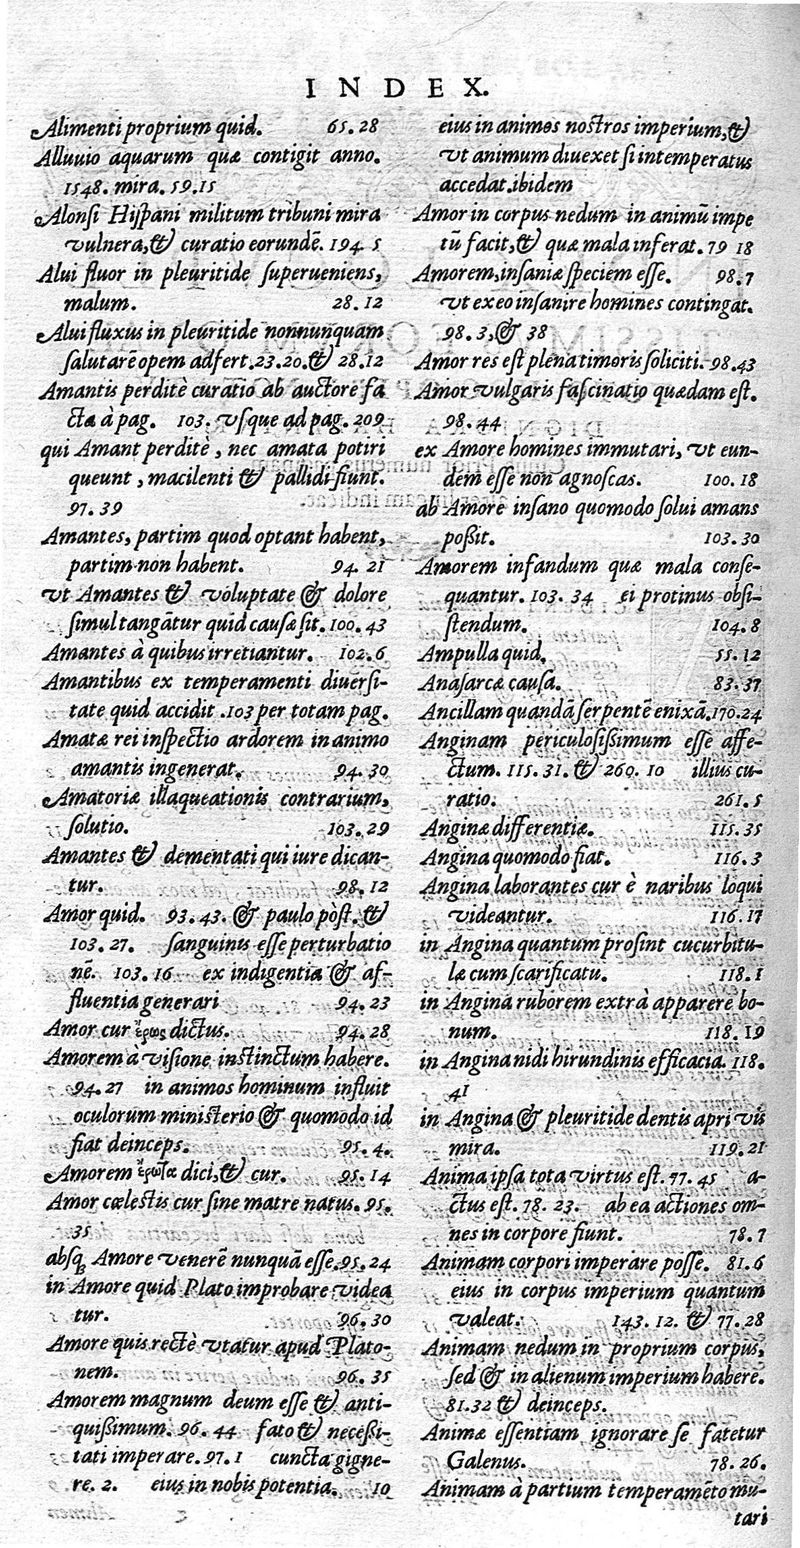 INDEX.
Alimenti proprium quid. 65.28
Alluuio aquarum quæ contigit anno.
1548. mira. 59.15
Alonsi Hispani militum tribuni mira
vulnera, & curatio eorundē. 194 5
Alui fluor in pleuritide superueniens,
malum. 28.12
Alui fluxus in pleuritide nonnunquam
salutarē opem adfert. 23.20. & 28.12
Amantis perditè curatio ab auctore fa
cta à pag. 103. vsque ad pag. 209
qui Amant perditè, nec amata potiri
queunt, macilenti & pallidi fiunt.
97. 39
Amantes, partim quod optant habent,
partim non habent. 94. 21
vt Amantes & voluptate & dolore
simul tangātur quid causæ sit. 100. 43
Amantes à quibus irretiantur. 102.6
Amantibus ex temperamenti diuersi-
tate quid accidit .103 per totam pag.
Amatæ rei inspectio ardorem in animo
amantis ingenerat. 94. 30
Amatoriæ illaqueationis contrarium,
solutio. 103.29
Amantes & dementati qui iure dican-
tur. 98. 12
Amor quid. 93. 43. & paulo pòst. &
103. 27. sanguinis esse perturbatio
nē. 103. 16 ex indigentia & af-
fluentia generari 94. 23
Amor cur ἔρως dictus. 94. 28
Amorem à visione instinctum habere.
94. 27 in animos hominum influit
oculorum ministerio & quomodo id
fiat deinceps. 95. 4.
Amorem ἔρωτα dici, & cur. 95. 14
Amor cælestis cur sine matre natus. 95.
35
absq; Amore venerē nunquā esse. 95. 24
in Amore quid Plato improbare videa
tur. 96. 30
Amore quis rectè vtatur apud Plato-
nem. 96. 35
Amorem magnum deum esse & anti-
quißimum. 96. 44 fato & neceßi-
tati imperare. 97. 1 cuncta gigne-
re. 2. eius in nobis potentia. 10
eius in animos nostros imperium, &
vt animum diuexet si intemperatus
accedat. ibidem
Amor in corpus nedum in animū impe
tū facit, & quæ mala inferat. 79 18
Amorem, insaniæ speciem esse. 98.7
vt ex eo insanire homines contingat.
98. 3, & 38
Amor res est plena timoris soliciti. 98.43
Amor vulgaris fascinatio quædam est.
98. 44
ex Amore homines immutari, vt eun-
dem esse non agnoscas. 100. 18
ab Amore insano quomodo solui amans
poßit. 103. 30
Amorem infandum quæ mala conse-
quantur. 103. 34 ei protinus obsi-
stendum. 104. 8
Ampulla quid. 55. 12
Anasarcæ causa. 83. 37
Ancillam quandā serpentē enixā. 170.24
Anginam periculosißimum esse affe-
ctum. 115. 31. & 260. 10 illius cu-
ratio. 261. 5
Anginæ differentiæ. 115. 35
Angina quomodo fiat. 116. 3
Angina laborantes cur è naribus loqui
videantur. 116. 17
in Angina quantum prosint cucurbitu-
læ cum scarificatu. 118. 1
in Angina ruborem extrà apparere bo-
num. 118. 19
in Angina nidi hirundinis efficacia. 118.
41
in Angina & pleuritide dentis apri vis
mira. 119. 21
Anima ipsa tota virtus est. 77. 45 a-
ctus est. 78. 23. ab ea actiones om-
nes in corpore fiunt. 78. 7
Animam corpori imperare posse. 81. 6
eius in corpus imperium quantum
valeat. 143. 12. & 77. 28
Animam nedum in proprium corpus,
sed & in alienum imperium habere.
81. 32 & deinceps.
Animæ essentiam ignorare se fatetur
Galenus. 78. 26.
Animam à partium temperamēto mu-
tari